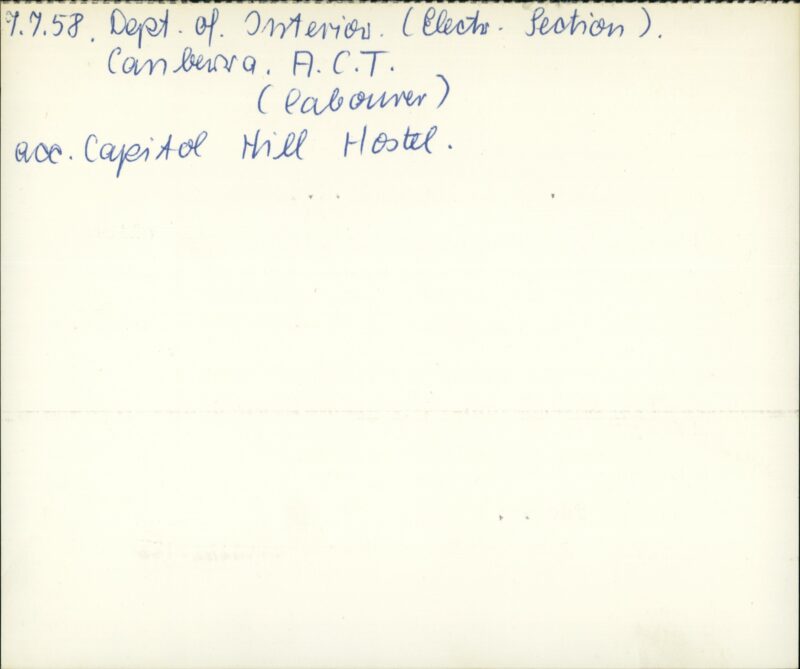 7.7.58. Dept. of. Interior. (Electr. Section).
Canberra. A.C.T.
(labourer)
acc. Capitol Hill Hostel.